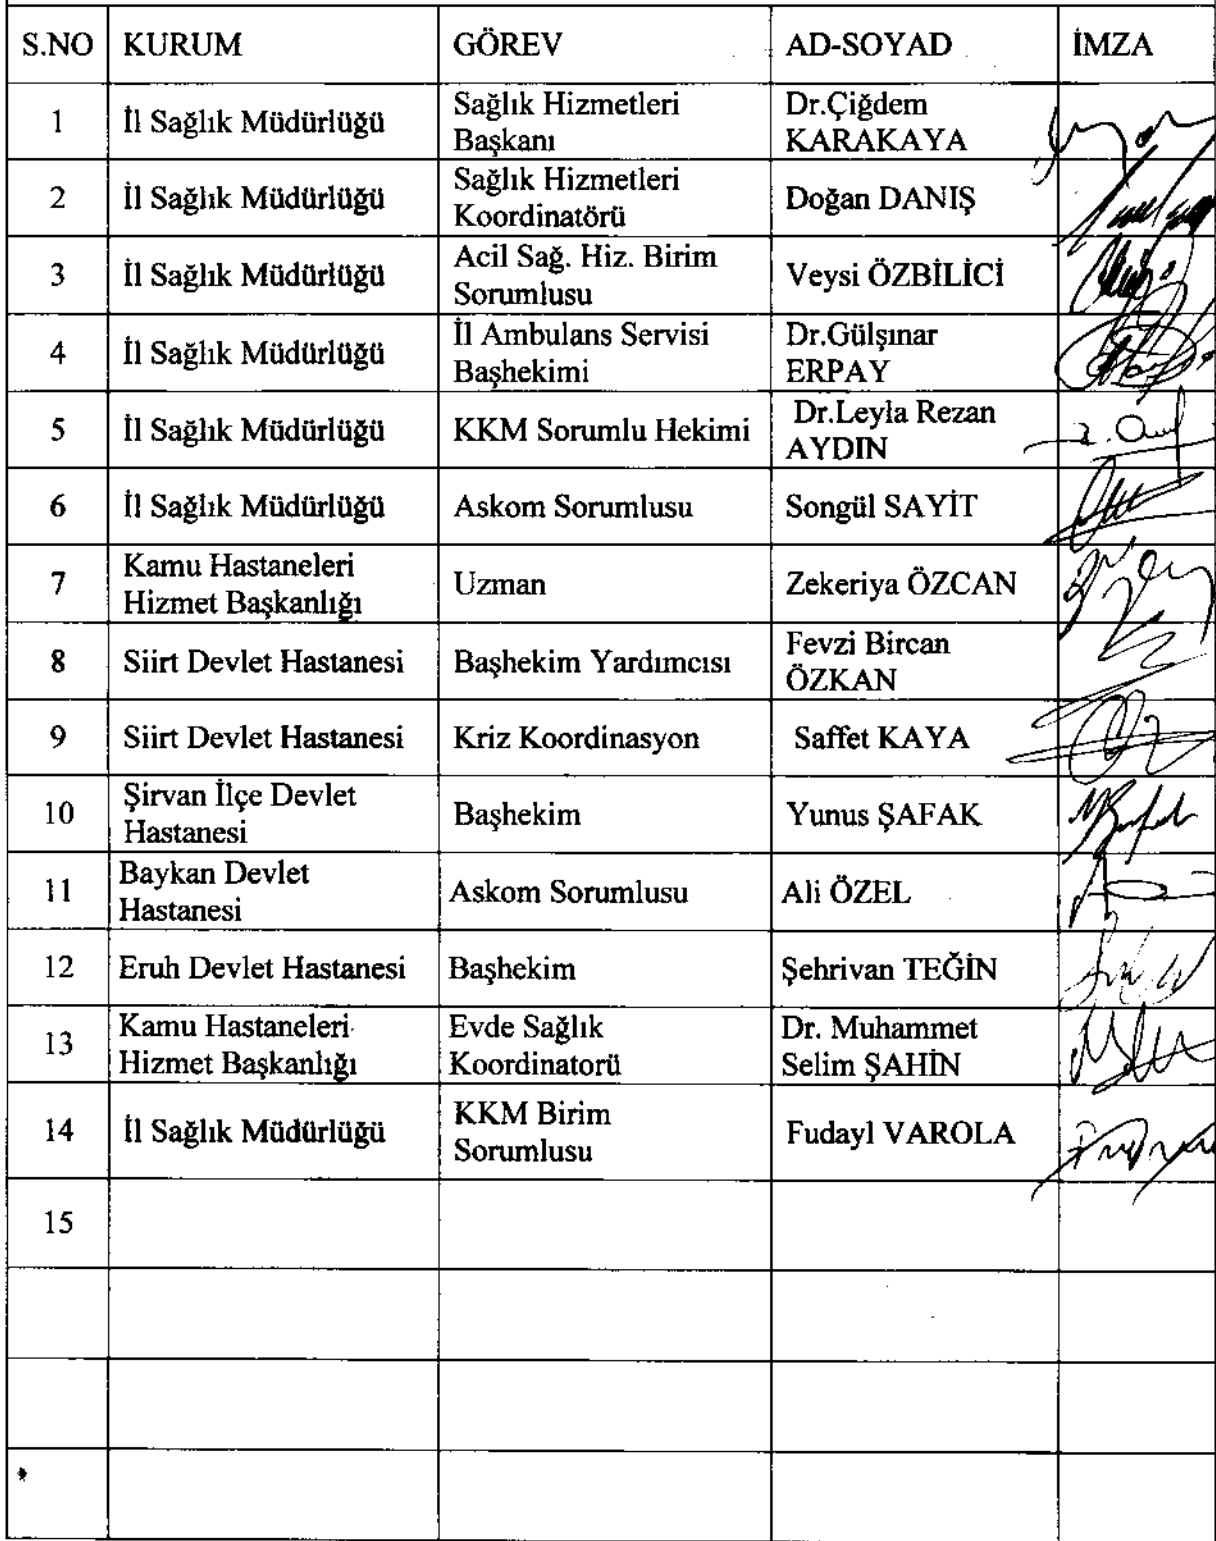 S.NO KURUM GÖREV AD-SOYAD İMZA
1 İl Sağlık Müdürlüğü Sağlık Hizmetleri Başkanı Dr.Çiğdem KARAKAYA
2 İl Sağlık Müdürlüğü Sağlık Hizmetleri Koordinatörü Doğan DANIŞ
3 İl Sağlık Müdürlüğü Acil Sağ. Hiz. Birim Sorumlusu Veysi ÖZBİLİCİ
4 İl Sağlık Müdürlüğü İl Ambulans Servisi Başhekimi Dr.Gülşınar ERPAY
5 İl Sağlık Müdürlüğü KKM Sorumlu Hekimi Dr.Leyla Rezan AYDIN
6 İl Sağlık Müdürlüğü Askom Sorumlusu Songül SAYİT
7 Kamu Hastaneleri Hizmet Başkanlığı Uzman Zekeriya ÖZCAN
8 Siirt Devlet Hastanesi Başhekim Yardımcısı Fevzi Bircan ÖZKAN
9 Siirt Devlet Hastanesi Kriz Koordinasyon Saffet KAYA
10 Şirvan İlçe Devlet Hastanesi Başhekim Yunus ŞAFAK
11 Baykan Devlet Hastanesi Askom Sorumlusu Ali ÖZEL
12 Eruh Devlet Hastanesi Başhekim Şehrivan TEĞİN
13 Kamu Hastaneleri Hizmet Başkanlığı Evde Sağlık Koordinatorü Dr. Muhammet Selim ŞAHİN
14 İl Sağlık Müdürlüğü KKM Birim Sorumlusu Fudayl VAROLA
15